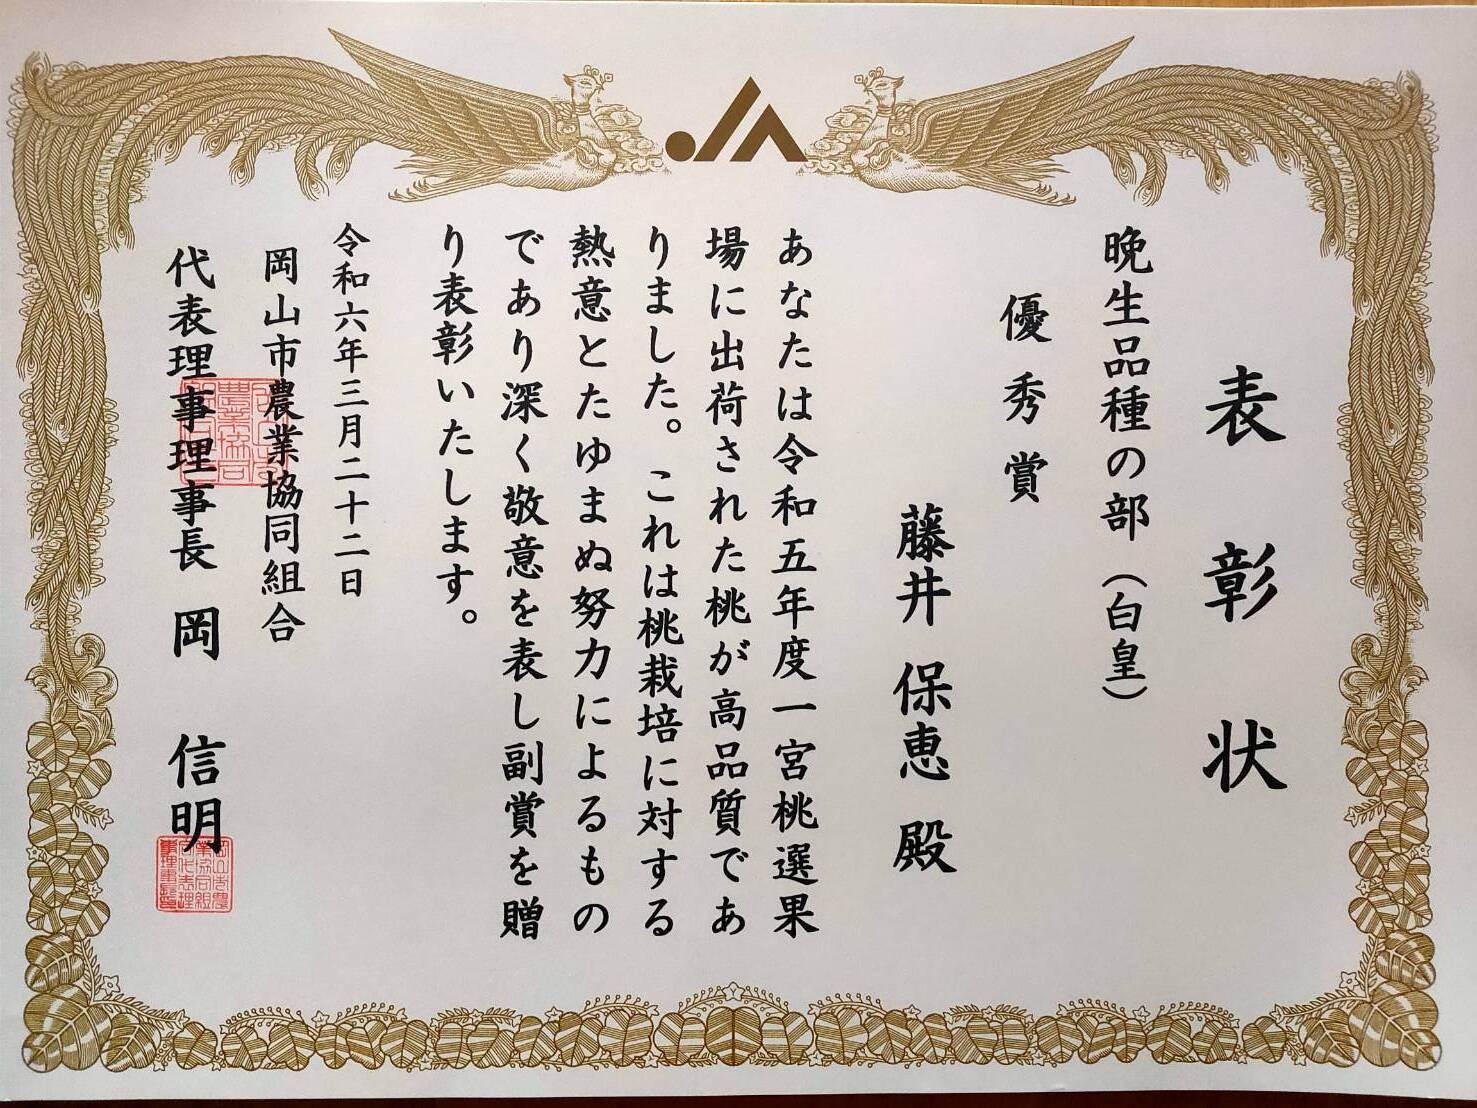 JA
表彰状
晩生品種の部（白皇）
優秀賞
藤井 保恵 殿
あなたは令和五年度一宮桃選果
場に出荷された桃が高品質であ
りました。これは桃栽培に対する
熱意とたゆまぬ努力によるもの
であり深く敬意を表し副賞を贈
り表彰いたします。
令和六年三月二十二日
岡山市農業協同組合
代表理事理事長 岡 信明